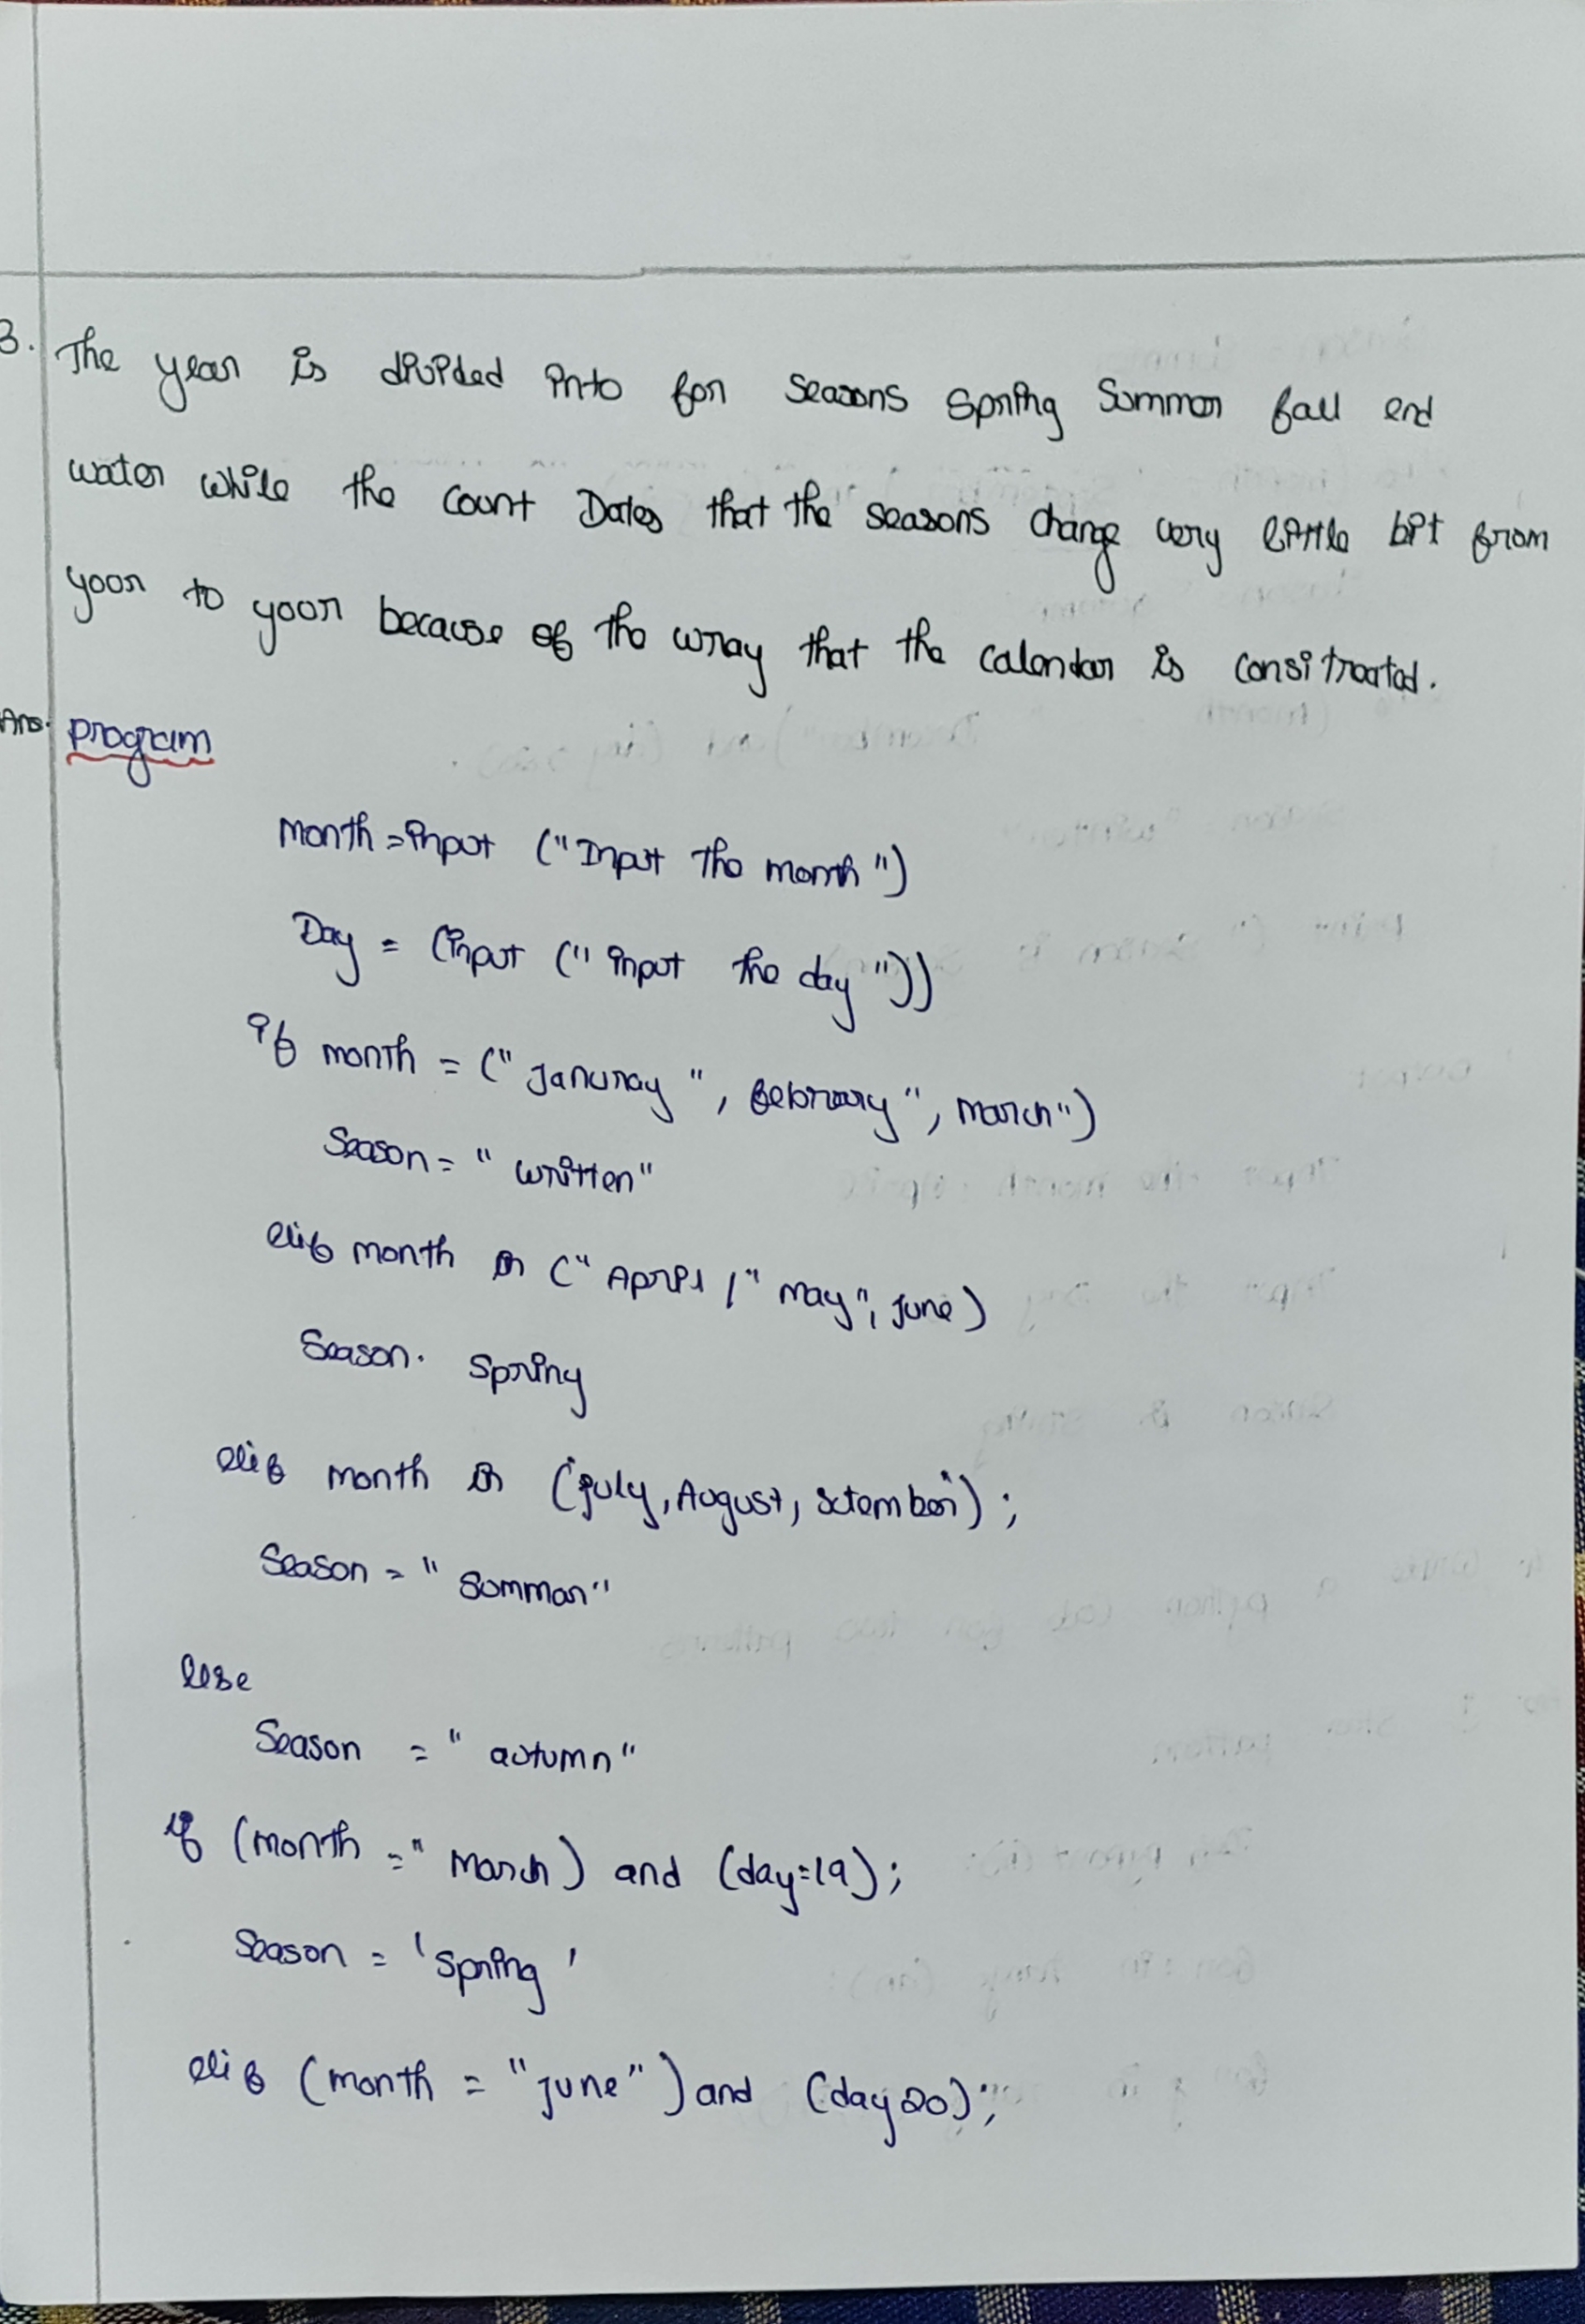 3. The year is divided into for seasons spring Sommon fall end
water while the Count Dates that the seasons change very little bit from
yoon to yoon because of the wray that the calendar is consitroatad.
Ans. program
month = input ("Input The month")
Day = (input ("input the day"))
if month = ("Januray", february", march")
Season = "written"
elif month in ("April /" may", June)
Season. Spriny
elif month in (july, August, setember);
Season = "Sommon"
lese
Season = "autumn"
if (month = "March) and (day=19);
Season = 'spring'
elif (month = "june") and (day20);